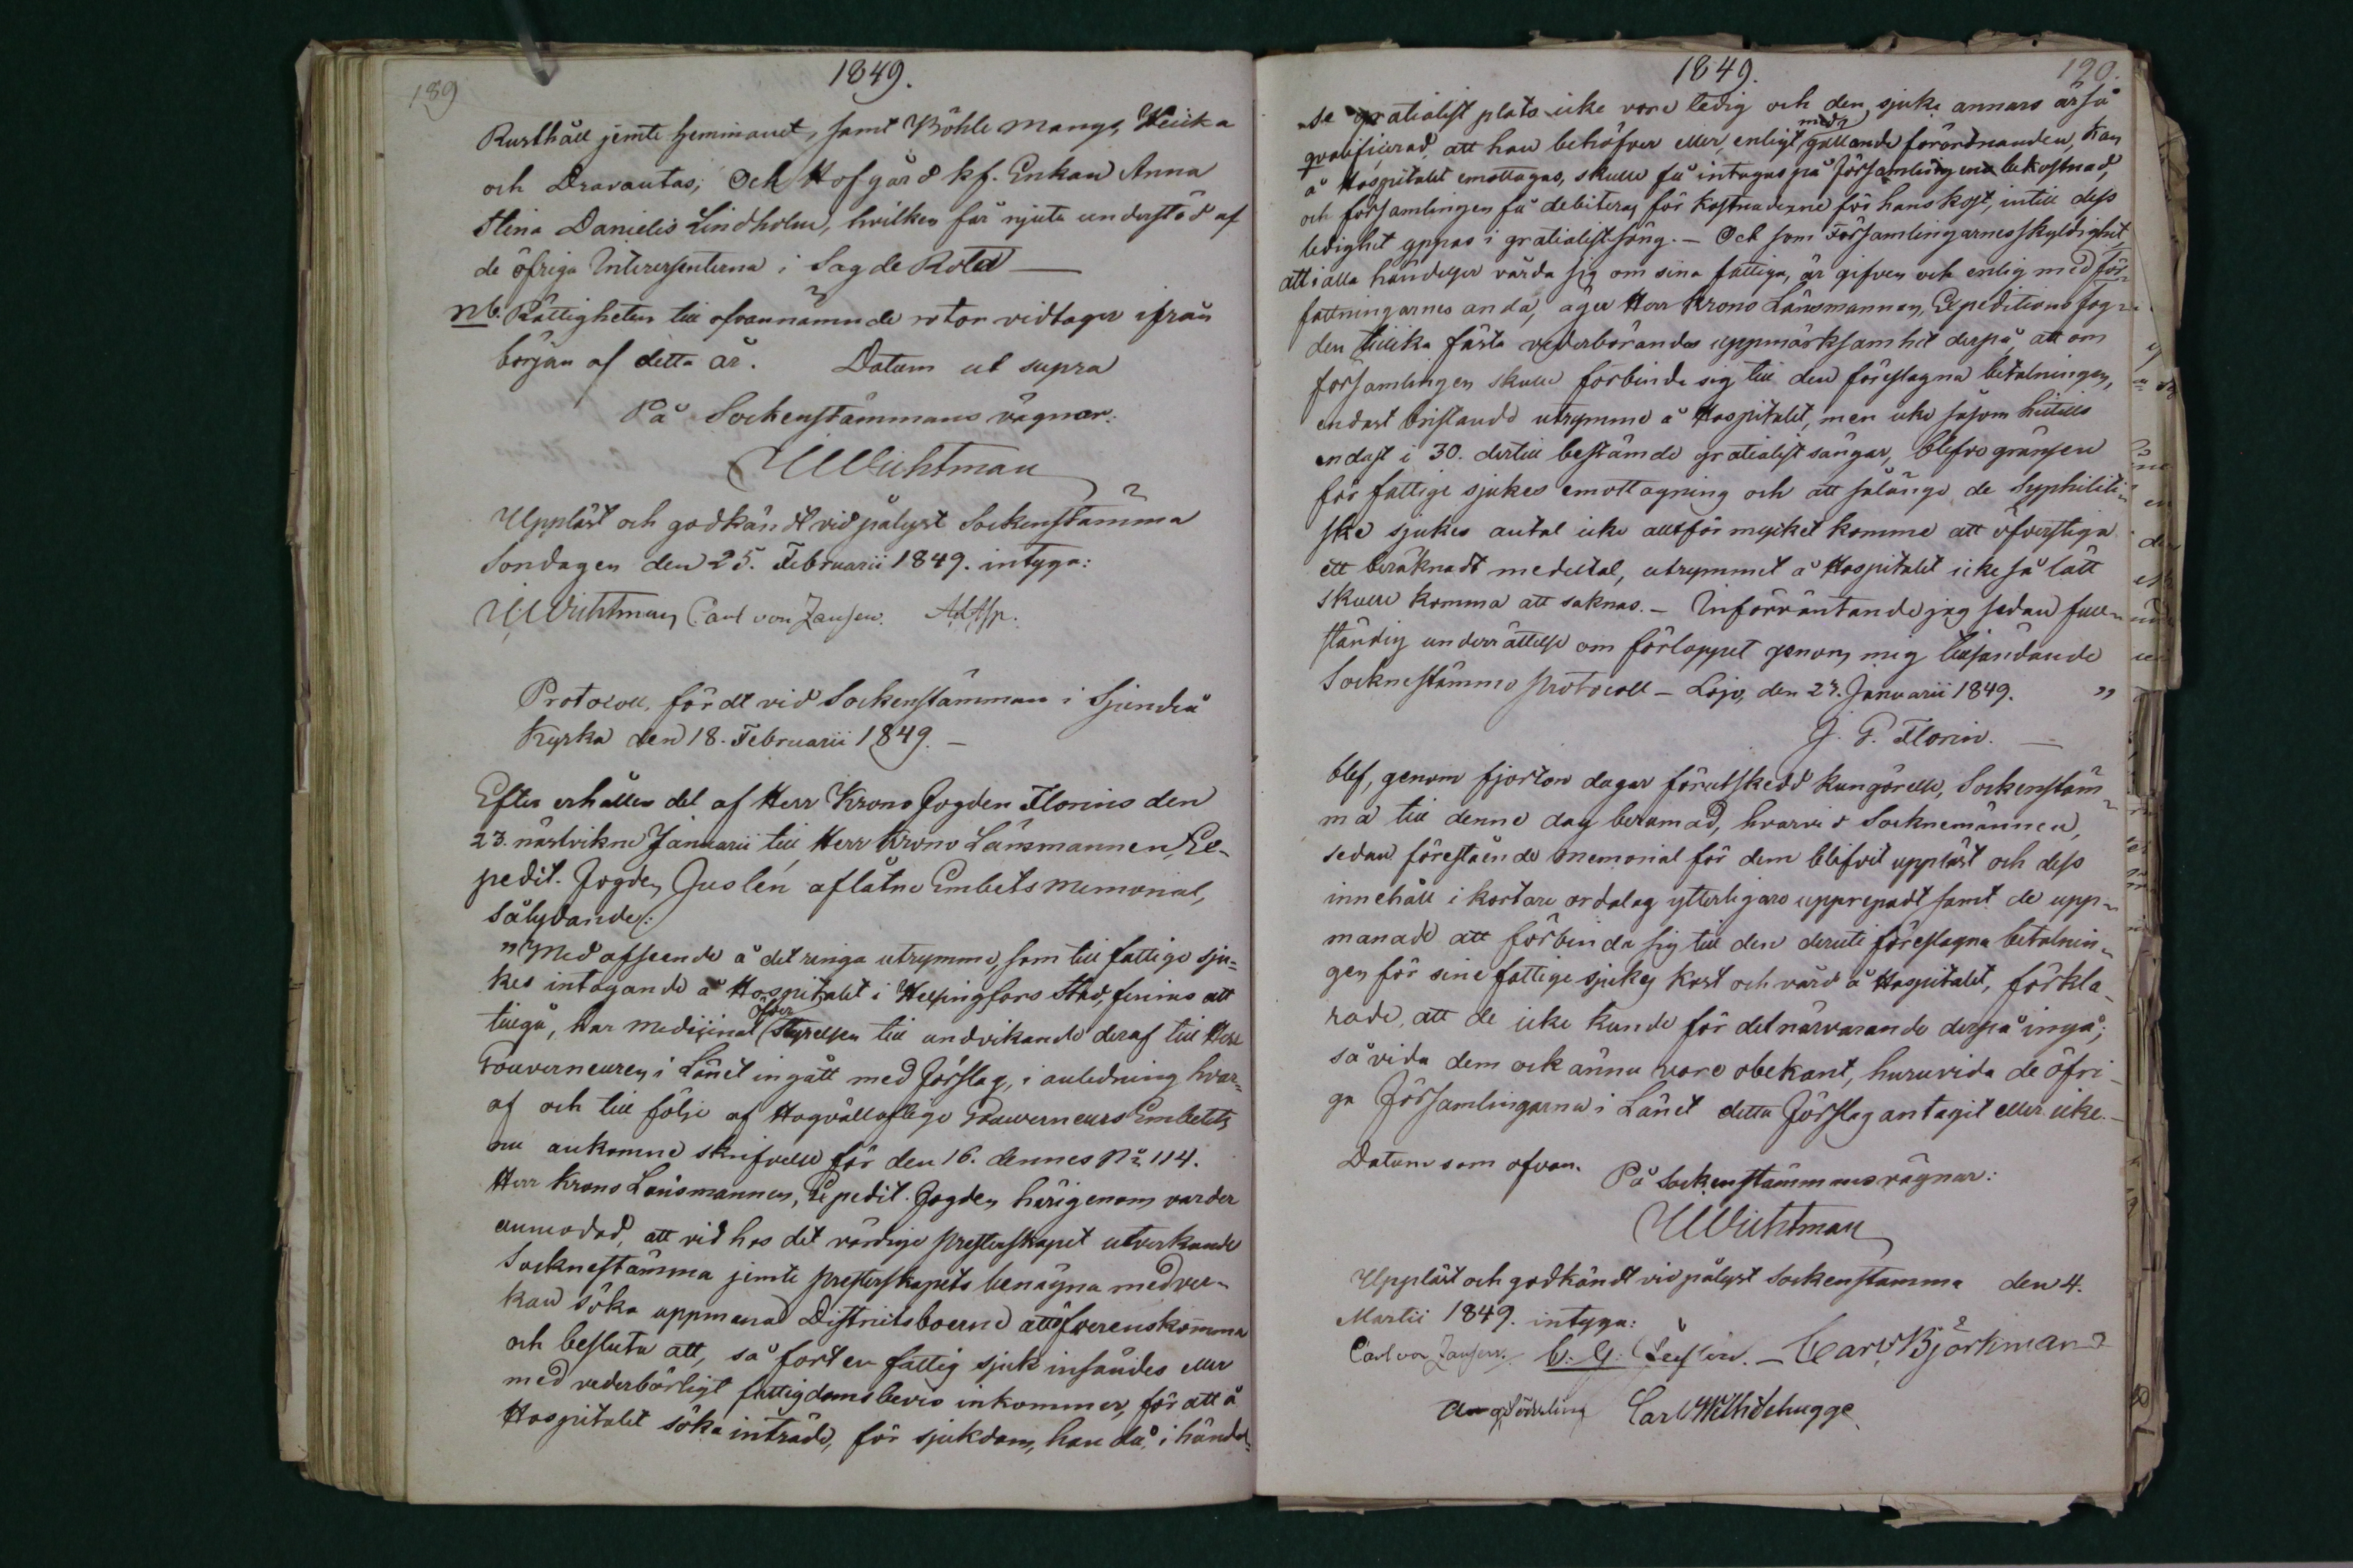 189
1849.
Rusthåll jemte hemmanet, samt Böhle Mangs, Heicka
och Dravantas; Och Hofgård kf. Enkan Anna
Stina Danielis Lindholm, hvilken får njuta understöd af
de öfriga Interessenterna i Sagde Rota —
nb. Rättigheten till ofvannämnde rotor vidtager ifrån
början af detta år. Datum ut supra
På Sockenstämmans vägnar:
Wichtman
Uppläst och godkändt vid pålyst Sockenstämma
Söndagen den 25. Februarii 1849. intyga:
Wichtman Carl von Jansen. Ad. Asp.
Protocoll, fördt vid Sockenstämman i Sjundeå
Kyrka den 18. Februarii 1849. —
Efter erhållen del af Herr Krono Fogden Florins den
23. nästvikne Januarii till Herr Krono Länsmannen, Ex-
pedit. Fogden Juslén aflåtne Embets Memorial,
sålydande:
"Med afseende å det ringa utrymme, som till fattige sju=
kes intagande å Hospitalet i Helsingfors Stad, finnes att
tillgå, har Medicinal öfver Styrelsen till undvikande deraf till Herr
Gouverneuren i Länet ingått med förslag, i anledning hvar=
af och till följe af Högvälloflige Gouverneurs Embetets
nu ankomne skrifvelse för den 16. dennes No 114.
Herr Krono Länsmannen, Expedit. Fogden härigenom varder
anmodad, att vid hos det vördige Presterskapet utverkande
Socknestämma jemte Presterskapets benägna medver-
kan söka uppmana Districtsboerne att öfverenskomma
och besluta att, så fort en fattig sjuk insändes eller
med vederbörligt fattigdomsbevis inkommer, för att å
Hospitalet söka inträde, för sjukdom, han då, i händel=
1849.
190.
se gratialist plats icke vore ledig och den sjuke annars är så
qvalificerad, att han behöfver eller, enligt med gällande förordnanden, kan
å Hospitalet emottagas, skulle få intagas på församlingens bekostnad,
och församlingen få debiteras för kostnaderne för hans kost, intill dess
ledighet yppas i gratialist säng. — Och som Församlingarnes skyldighet
att i alla händelser vårda sig om sina fattiga, är gifven och enlig med för=
fattningarnes anda, äger Herr Krono Länsmannen, Expeditions Fog=
den tillika fästa vederbörandes uppmärksamhet derpå, att om
församlingen skulle förbinda sig till den föreslagna betalningen,
endast bristande utrymme å Hospitalet, men icke såsom hittills
endast i 30. dertill bestämde gratialist sängar, blefve gränsen
för fattige sjukes emottagning och att sålänge de Syphiliti=
ske sjukes antal icke alltför mycket komme att öfverstiga
ett beräknadt medeltal, utrymmet å Hospitalet icke så lätt
skulle komma att saknas. — Införväntande jag sedan full=
ständig underrättelse om förloppet genom mig tillsändande
Socknestämmo Protocoll — Lojo, den 23. Januarii 1849. "
G. P. Florin. —
blef, genom fjorton dagar förutskedd kungörelse, Sockenstäm=
ma till denne dag beramad, hvarvid Socknemännen,
sedan förestående Memorial för dem blifvit uppläst och dess
innehåll i kortare ordalag ytterligare upprepadt samt de upp=
manade att förbinda sig till den deruti föreslagna betalnin=
gen för sine fattige sjukes kost och vård å Hospitalet, förkla=
rade, att de icke kunde för det närvarande derpå ingå;
så vida dem ock ännu vore obekant, huruvida de öfri=
ga Församlingarna i Länet detta förslag antagit eller icke. —
Datum som ofvan. På Sockenstämmans vägnar:
Wichtman
Uppläst och godkändt vid pålyst Sockenstämma den 4.
Martii 1849. intyga:
Carl von Jansen. C. G. — Carl Björkman
Carl Wilh Schugge